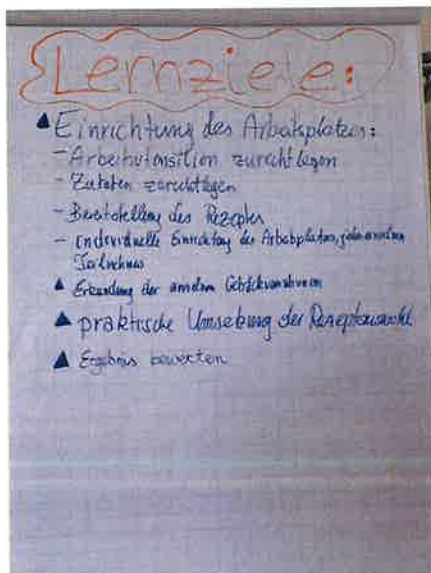 Lernziele:
▲ Einrichtung des Arbeitsplatzes:
- Arbeitsutensilien zurechtlegen
- Zutaten zurechtlegen
- Bereitstellung des Rezeptes
- individuelle Einrichtung des Arbeitsplatzes, jedes einzelnen
Teilnehmers
▲ der
▲ praktische Umsetzung der Rezeptauswahl
▲ Ergebnis bewerten